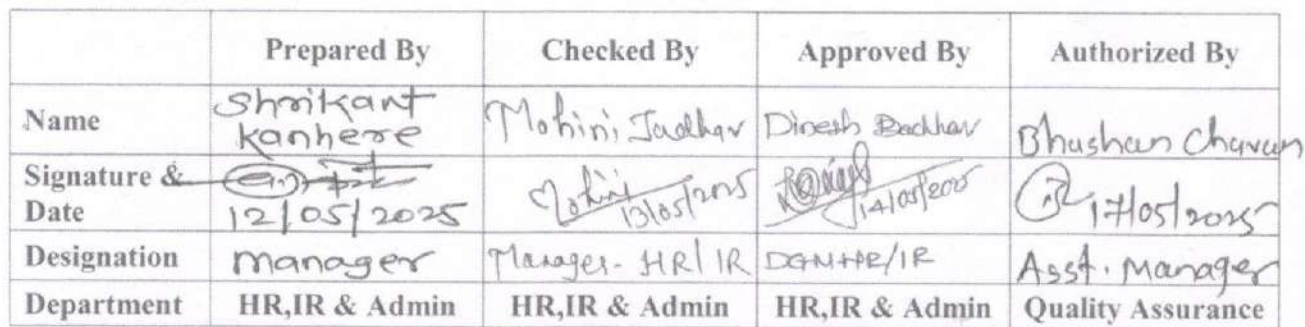 Prepared By Checked By Approved By Authorized By
Name Shrikant Kanhere Mohini Jadhav Dinesh Badhav Bhushan Chavan
Signature & Date 12/05/2025 Mohini 13/05/2025 14/05/2025 17/05/2025
Designation manager Manager- HR/IR DGM HR/IR Asst. Manager
Department HR,IR & Admin HR,IR & Admin HR,IR & Admin Quality Assurance